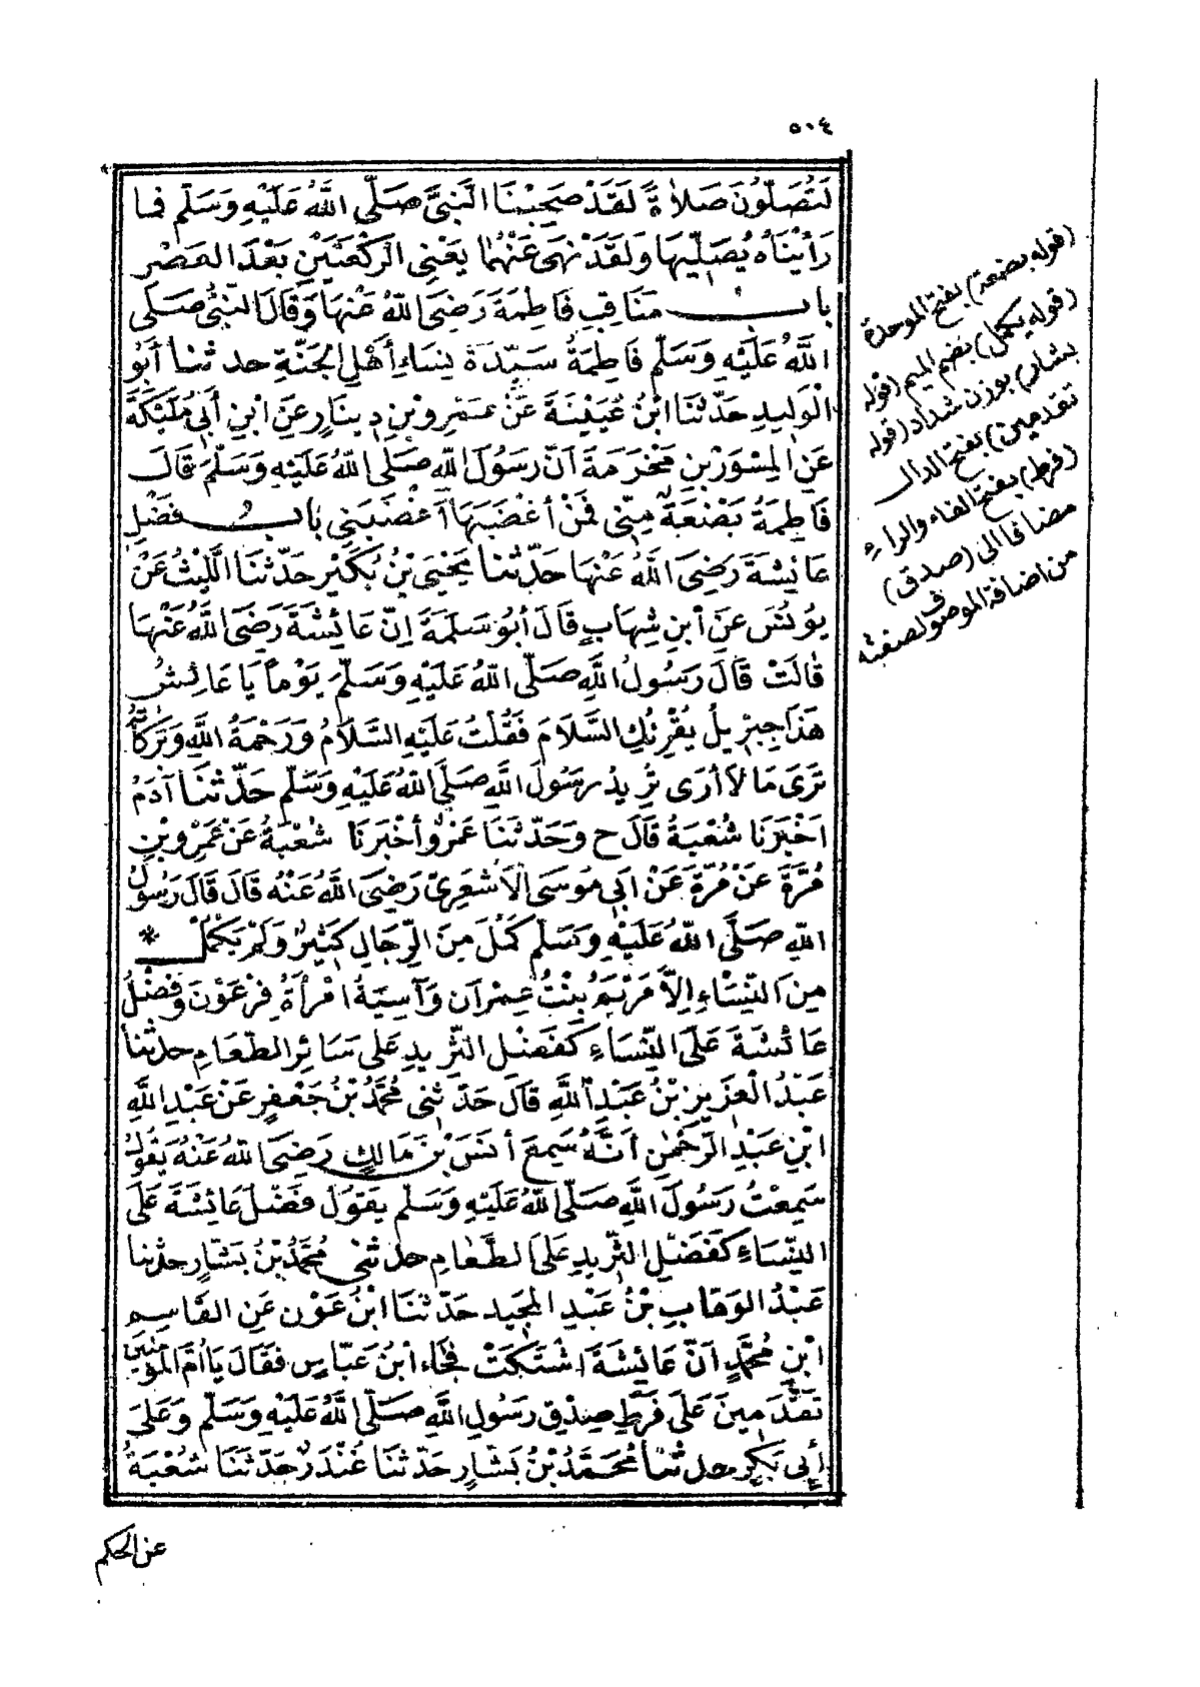 ٥٠٤
لَتُصَلُّونَ صَلَاةً لَقَدْ صَحِبْنَا النَّبِيَّ صَلَّى اللَّهُ عَلَيْهِ وَسَلَّمَ فَمَا
رَأَيْنَاهُ يُصَلِّيهَا وَلَقَدْ نَهَى عَنْهُمَا يَعْنِي الرَّكْعَتَيْنِ بَعْدَ الْعَصْرِ
بَابُ مَنَاقِبِ فَاطِمَةَ رَضِيَ اللَّهُ عَنْهَا وَقَالَ النَّبِيُّ صَلَّى
اللَّهُ عَلَيْهِ وَسَلَّمَ فَاطِمَةُ سَيِّدَةُ نِسَاءِ أَهْلِ الْجَنَّةِ حدثنا أَبُو
الْوَلِيدِ حَدَّثَنَا ابْنُ عُيَيْنَةَ عَنْ عَمْرِو بْنِ دِينَارٍ عَنِ ابْنِ أَبِي مُلَيْكَةَ
عَنِ الْمِسْوَرِ بْنِ مَخْرَمَةَ أَنَّ رَسُولَ اللَّهِ صَلَّى اللَّهُ عَلَيْهِ وَسَلَّمَ قَالَ
فَاطِمَةُ بَضْعَةٌ مِنِّي فَمَنْ أَغْضَبَهَا أَغْضَبَنِي بَابُ فَضْلِ
عَائِشَةَ رَضِيَ اللَّهُ عَنْهَا حَدَّثَنَا يَحْيَى بْنُ بُكَيْرٍ حَدَّثَنَا اللَّيْثُ عَنْ
يُونُسَ عَنِ ابْنِ شِهَابٍ قَالَ أَبُو سَلَمَةَ إِنَّ عَائِشَةَ رَضِيَ اللَّهُ عَنْهَا
قَالَتْ قَالَ رَسُولُ اللَّهِ صَلَّى اللَّهُ عَلَيْهِ وَسَلَّمَ يَوْمًا يَا عَائِشُ
هَذَا جِبْرِيلُ يُقْرِئُكِ السَّلَامَ فَقُلْتُ عَلَيْهِ السَّلَامُ وَرَحْمَةُ اللَّهِ وَبَرَكَاتُهُ
تَرَى مَا لَا أَرَى تُرِيدُ رَسُولَ اللَّهِ صَلَّى اللَّهُ عَلَيْهِ وَسَلَّمَ حَدَّثَنَا آدَمُ
أَخْبَرَنَا شُعْبَةُ قَالَ ح وَحَدَّثَنَا عَمْرٌو أَخْبَرَنَا شُعْبَةُ عَنْ عَمْرِو بْنِ
مُرَّةَ عَنْ مُرَّةَ عَنْ أَبِي مُوسَى الْأَشْعَرِيِّ رَضِيَ اللَّهُ عَنْهُ قَالَ قَالَ رَسُولُ
اللَّهِ صَلَّى اللَّهُ عَلَيْهِ وَسَلَّمَ كَمُلَ مِنَ الرِّجَالِ كَثِيرٌ وَلَمْ يَكْمُلْ *
مِنَ النِّسَاءِ إِلَّا مَرْيَمُ بِنْتُ عِمْرَانَ وَآسِيَةُ امْرَأَةُ فِرْعَوْنَ وَفَضْلُ
عَائِشَةَ عَلَى النِّسَاءِ كَفَضْلِ الثَّرِيدِ عَلَى سَائِرِ الطَّعَامِ حدثنا
عَبْدُ الْعَزِيزِ بْنُ عَبْدِ اللَّهِ قَالَ حَدَّثَنِي مُحَمَّدُ بْنُ جَعْفَرٍ عَنْ عَبْدِ اللَّهِ
ابْنِ عَبْدِ الرَّحْمَنِ أَنَّهُ سَمِعَ أَنَسَ بْنَ مَالِكٍ رَضِيَ اللَّهُ عَنْهُ يَقُولُ
سَمِعْتُ رَسُولَ اللَّهِ صَلَّى اللَّهُ عَلَيْهِ وَسَلَّمَ يَقُولُ فَضْلُ عَائِشَةَ عَلَى
النِّسَاءِ كَفَضْلِ الثَّرِيدِ عَلَى الطَّعَامِ حدثني مُحَمَّدُ بْنُ بَشَّارٍ حدثنا
عَبْدُ الْوَهَّابِ بْنُ عَبْدِ الْمَجِيدِ حَدَّثَنَا ابْنُ عَوْنٍ عَنِ الْقَاسِمِ
ابْنِ مُحَمَّدٍ أَنَّ عَائِشَةَ اشْتَكَتْ فَجَاءَ ابْنُ عَبَّاسٍ فَقَالَ يَا أُمَّ الْمُؤْمِنِينَ
تَقْدَمِينَ عَلَى فَرَطِ صِدْقٍ رَسُولِ اللَّهِ صَلَّى اللَّهُ عَلَيْهِ وَسَلَّمَ وَعَلَى
أَبِي بَكْرٍ حدثنا مُحَمَّدُ بْنُ بَشَّارٍ حَدَّثَنَا غُنْدَرٌ حَدَّثَنَا شُعْبَةُ
عن الحكم
(قوله بضعة) بفتح الموحدة
(قوله يكمل) بضم الميم (قوله
بشار) بوزن شداد (قوله
تقدمين) بفتح الدال
(فرط) بفتح الفاء والراء
مضافا الى (صدق)
من اضافة الموصوف لصفته